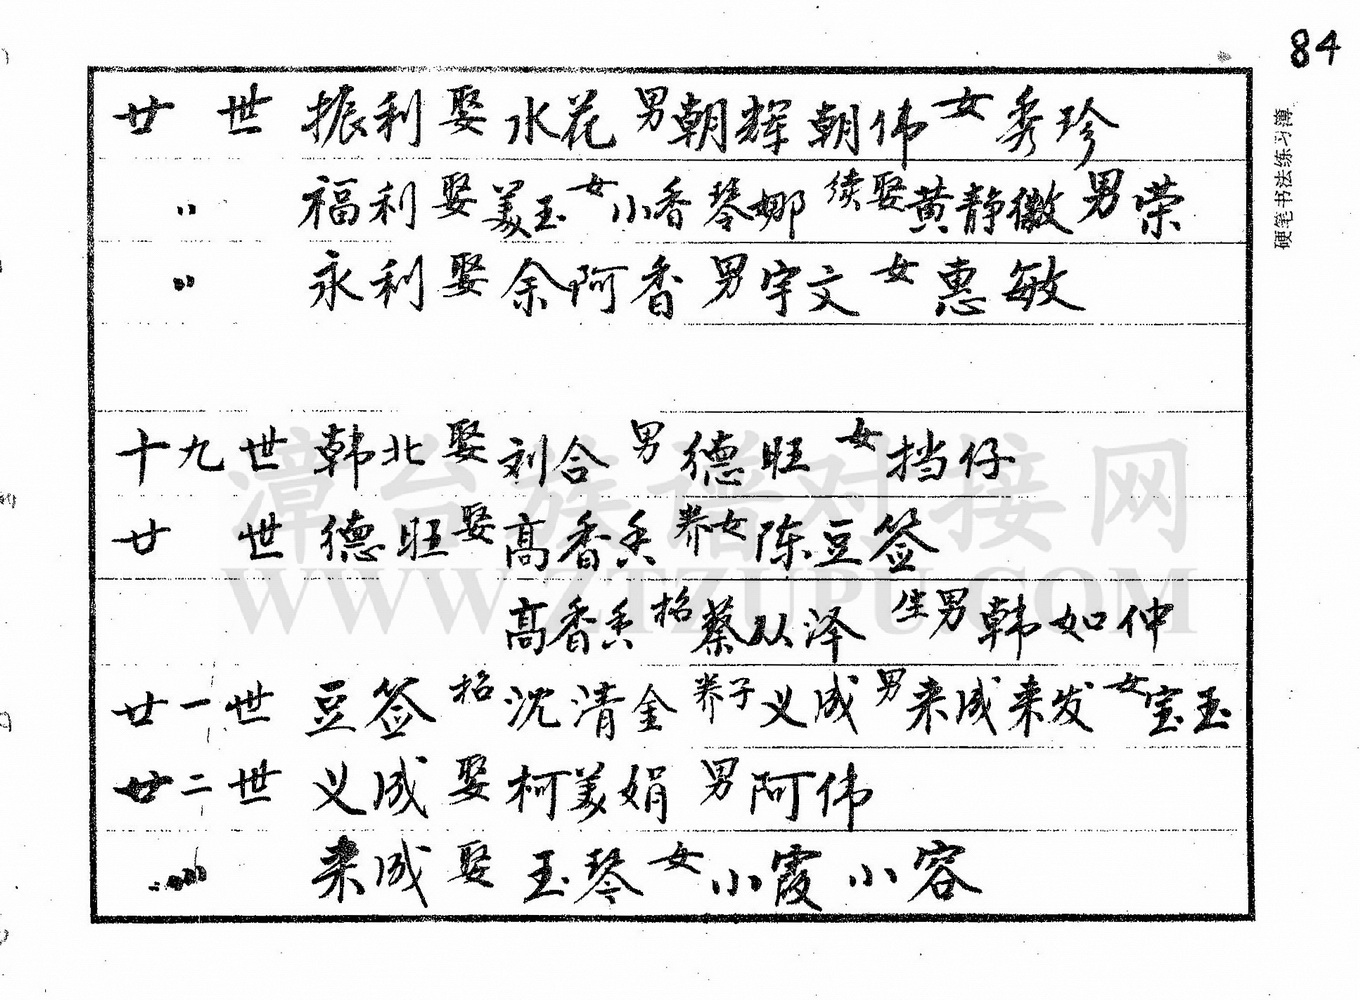 84
廿 世 振利 娶 水花 男 朝辉 朝伟 女 秀珍
〃 福利 娶 美玉 女 小香 琴娜 续娶 黄静微 男 荣
〃 永利 娶 余阿香 男 宇文 女 惠敏
十九世 韩北 娶 刘合 男 德旺 女 挡仔
廿 世 德旺 娶 高香 养女 陈豆签
高香 招 蔡从泽 生男 韩如仲
廿一世 豆签 招 沈清金 养子 义成 男 来成 来发 女 宝玉
廿二世 义成 娶 柯美娟 男 阿伟
〃 来成 娶 玉琴 女 小霞 小容
硬笔书法练习薄
漳台族谱对接网
WWW.ZTZUPU.COM